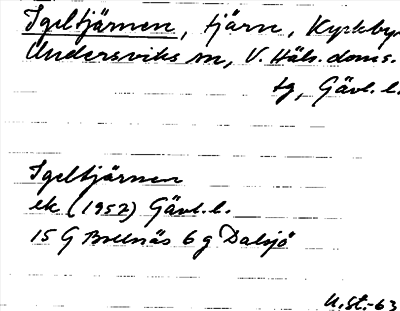 Igeltjärnen, tjärn, Kyrkbyn
Undersviks sn, V. Häls. doms.
tg, Gävl. l.
Igeltjärnen
ek (1952) Gävl. l.
15 G Bollnäs 6 g Dalsjö
U.St.-63